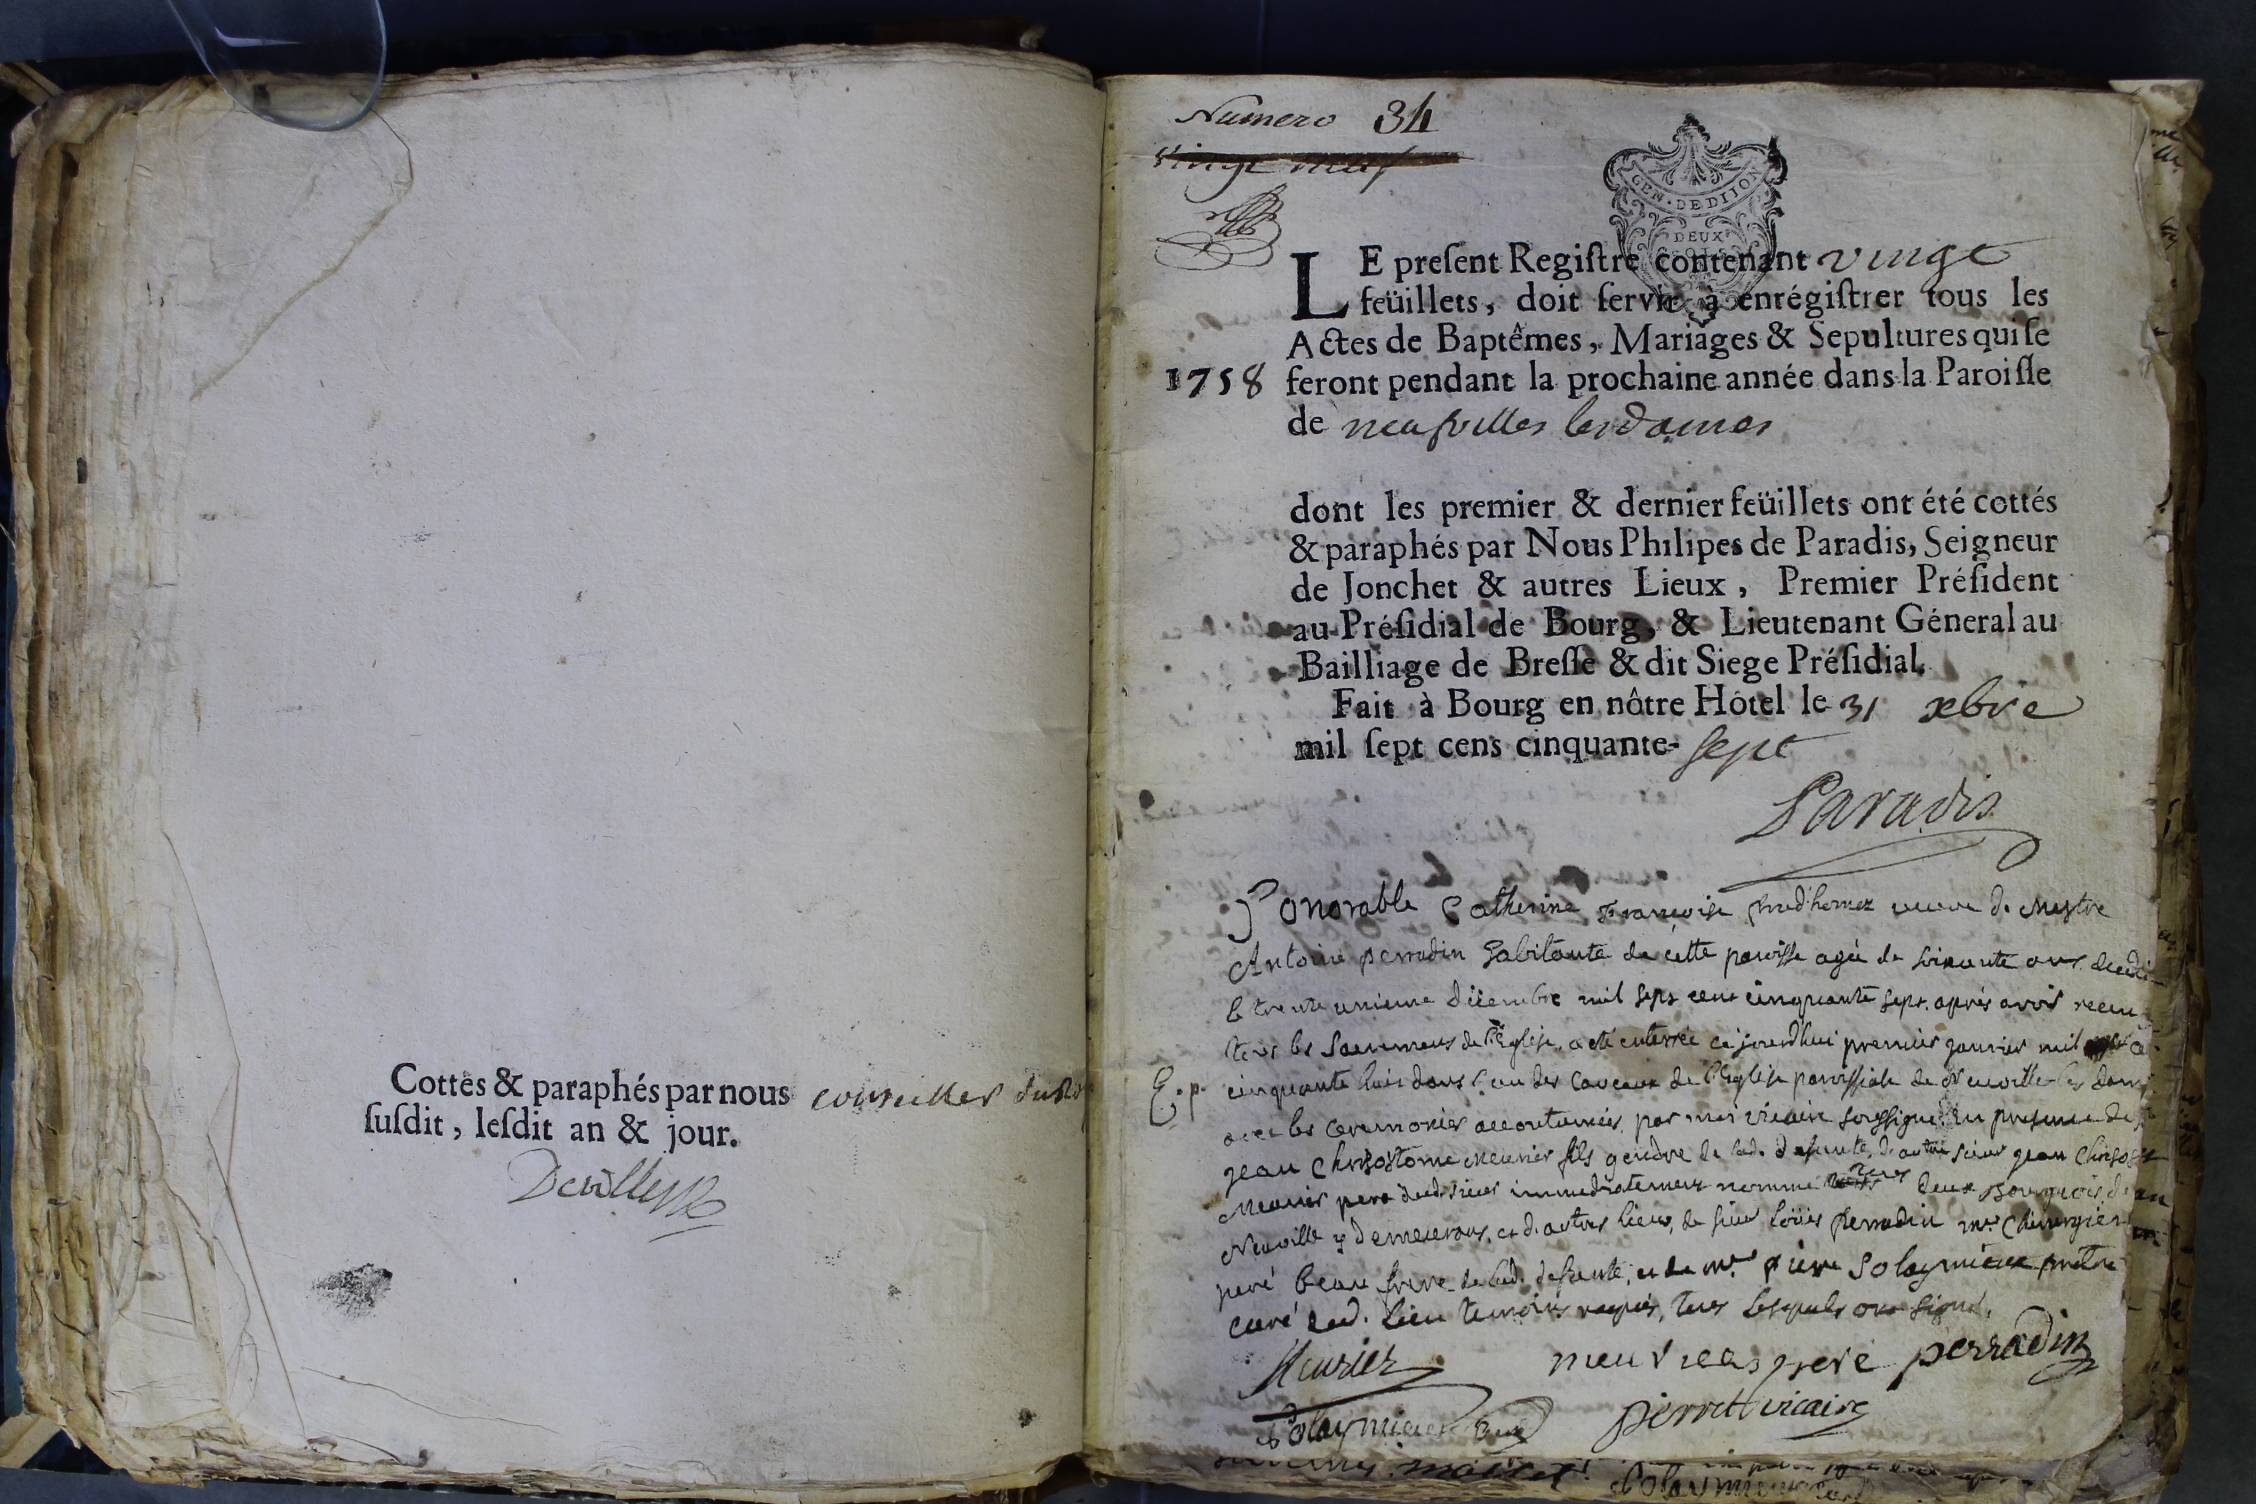 Cottés & paraphés par nous conseiller du Roy
ſuſdit, leſdit an & jour.
Numero 34
vingt neuf
GEN. DE DIJON
DEUX
SOLS
LE preſent Regiſtre contenant vingt
feüillets, doit ſervir à enrégiſtrer tous les
Actes de Baptêmes, Mariages & Sepultures qui ſe
1758 feront pendant la prochaine année dans la Paroiſſe
de neufvilles les dames
dont les premier & dernier feüillets ont été cottés
& paraphés par Nous Philipes de Paradis, Seigneur
de Jonchet & autres Lieux, Premier Préſident
au Préſidial de Bourg, & Lieutenant Géneral au
Bailliage de Breſſe & dit Siege Préſidial.
Fait à Bourg en nôtre Hôtel le 31 xbre
mil ſept cens cinquante-sept
Paradis
Honorable Catherine Françoise prud'homez veuve de Mestre
Antoine perradin habitante de cette paroisse agée de soixante ans decedée
le trente unieme décembre mil sept cent cinquante sept. après avoir receu
tous les Sacremens de l'Eglise, a eté enterrée ce jourd'hui premier janvier mil sept ce
E. p. cinquante huit dans l'un des caveaux de l'Eglise paroissiale de Neuville les dames
avec les ceremonies accoutumées, par moi vicaire soussigné. En presence de
jean Chrisostome Meunier fils gendre de lad. defunte, d'autre sieur jean Chrisost
Meunier pere dud. sieur immediatement nommé tous deux Bourgeois de
Neuville y demeurans, et d'autres lieux, de sieur Loüis Perradin me. Chirurgien
peré beau frere de lad. defunte, et de mre pierre Solaymieux prêtre
curé dud. lieu temoins requis, tous lesquels ont signé.
Meunier meunier peré perradin
Solaymieux curé perret vicaire